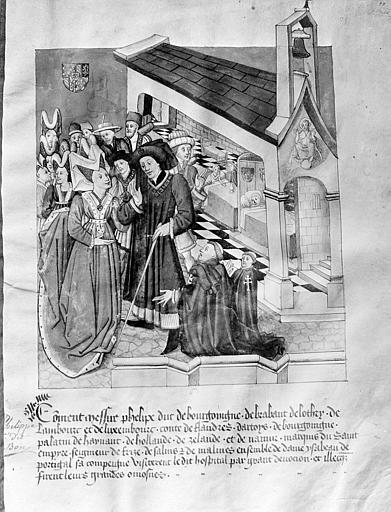 Coment messire phelipe duc de bourgoingne · de brabant de lothry · de
Lambourc et de luxembourc · conte de flandres · dartoys · de bourgoingne ·
palatin de haynault · de hollande · de zelande · et de namur · marquis du Saint
empire · seigneur de frize · de salins · de malines ensemble de dame ysabeau de
portigal sa compeigne visiterent le dit hospital par grant devocion · et illecq
firent leurs grandes omosnes ·
Philippe
Le
Bon